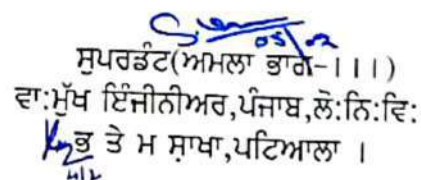 05/02
ਸੁਪਰਡੰਟ(ਅਮਲਾ ਭਾਗ-।।।)
ਵਾ:ਮੁੱਖ ਇੰਜੀਨੀਅਰ,ਪੰਜਾਬ,ਲੋ:ਨਿ:ਵਿ:
ਭ ਤੇ ਮ ਸ਼ਾਖਾ,ਪਟਿਆਲਾ ।